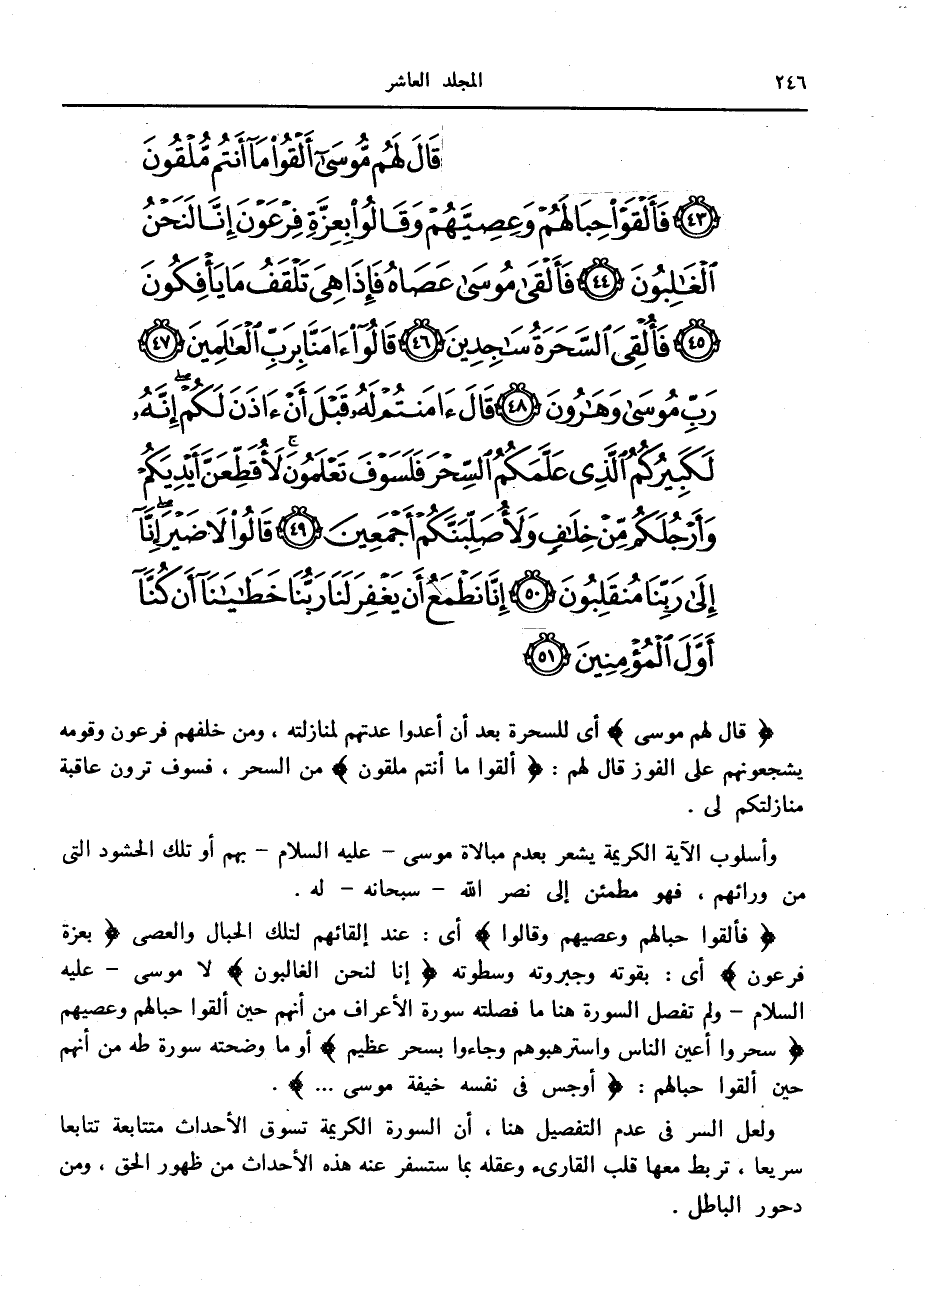 ٢٤٦
المجلد العاشر
قَالَ لَهُم مُّوسَىٰٓ أَلْقُوا۟ مَآ أَنتُم مُّلْقُونَ
﴿٤٣﴾ فَأَلْقَوْا۟ حِبَالَهُمْ وَعِصِيَّهُمْ وَقَالُوا۟ بِعِزَّةِ فِرْعَوْنَ إِنَّا لَنَحْنُ
ٱلْغَـٰلِبُونَ ﴿٤٤﴾ فَأَلْقَىٰ مُوسَىٰ عَصَاهُ فَإِذَا هِىَ تَلْقَفُ مَا يَأْفِكُونَ
﴿٤٥﴾ فَأُلْقِىَ ٱلسَّحَرَةُ سَـٰجِدِينَ ﴿٤٦﴾ قَالُوٓا۟ ءَامَنَّا بِرَبِّ ٱلْعَـٰلَمِينَ ﴿٤٧﴾
رَبِّ مُوسَىٰ وَهَـٰرُونَ ﴿٤٨﴾ قَالَ ءَامَنتُمْ لَهُۥ قَبْلَ أَنْ ءَاذَنَ لَكُمْ ۖ إِنَّهُۥ
لَكَبِيرُكُمُ ٱلَّذِى عَلَّمَكُمُ ٱلسِّحْرَ فَلَسَوْفَ تَعْلَمُونَ ۚ لَأُقَطِّعَنَّ أَيْدِيَكُمْ
وَأَرْجُلَكُم مِّنْ خِلَـٰفٍ وَلَأُصَلِّبَنَّكُمْ أَجْمَعِينَ ﴿٤٩﴾ قَالُوا۟ لَا ضَيْرَ ۖ إِنَّآ
إِلَىٰ رَبِّنَا مُنقَلِبُونَ ﴿٥٠﴾ إِنَّا نَطْمَعُ أَن يَغْفِرَ لَنَا رَبُّنَا خَطَـٰيَـٰنَآ أَن كُنَّآ
أَوَّلَ ٱلْمُؤْمِنِينَ ﴿٥١﴾
﴿ قال لهم موسى ﴾ أى للسحرة بعد أن أعدوا عدتهم لمنازلته ، ومن خلفهم فرعون وقومه
يشجعونهم على الفوز قال لهم : ﴿ ألقوا ما أنتم ملقون ﴾ من السحر ، فسوف ترون عاقبة
منازلتكم لى .
وأسلوب الآية الكريمة يشعر بعدم مبالاة موسى - عليه السلام - بهم أو تلك الحشود التى
من ورائهم ، فهو مطمئن إلى نصر الله - سبحانه - له .
﴿ فألقوا حبالهم وعصيهم وقالوا ﴾ أى : عند إلقائهم لتلك الحبال والعصى ﴿ بعزة
فرعون ﴾ أى : بقوته وجبروته وسطوته ﴿ إنا لنحن الغالبون ﴾ لا موسى - عليه
السلام - ولم تفصل السورة هنا ما فصلته سورة الأعراف من أنهم حين ألقوا حبالهم وعصيهم
﴿ سحروا أعين الناس واسترهبوهم وجاءوا بسحر عظيم ﴾ أو ما وضحته سورة طه من أنهم
حين ألقوا حبالهم : ﴿ أوجس فى نفسه خيفة موسى ... ﴾ .
ولعل السر فى عدم التفصيل هنا ، أن السورة الكريمة تسوق الأحداث متتابعة تتابعا
سريعا ، تربط معها قلب القارىء وعقله بما ستسفر عنه هذه الأحداث من ظهور الحق ، ومن
دحور الباطل .